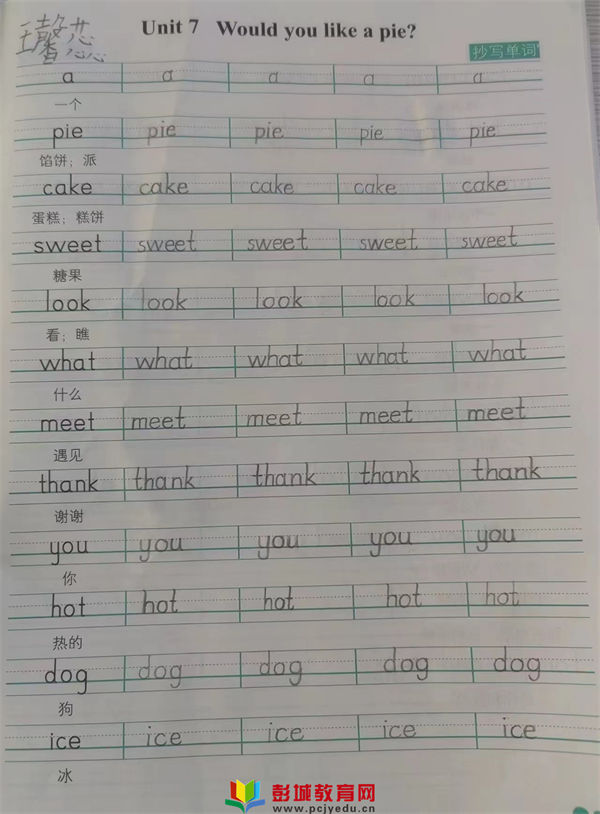 王馨蕊
Unit 7 Would you like a pie?
抄写单词
a a a a a
一个
pie pie pie pie pie
馅饼；派
cake cake cake cake cake
蛋糕；糕饼
sweet sweet sweet sweet sweet
糖果
look look look look look
看；瞧
what what what what what
什么
meet meet meet meet meet
遇见
thank thank thank thank thank
谢谢
you you you you you
你
hot hot hot hot hot
热的
dog dog dog dog dog
狗
ice ice ice ice ice
冰
彭城教育网
www.pcjyedu.cn